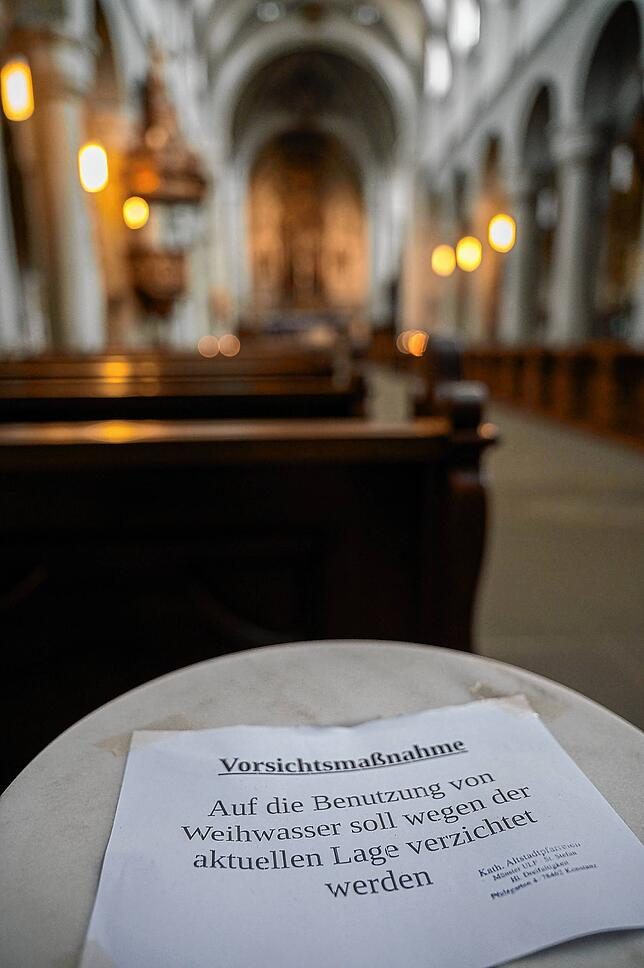 Vorsichtsmaßnahme
Auf die Benutzung von
Weihwasser soll wegen der
aktuellen Lage verzichtet
werden
Kath. Altstadtpfarreien
Münster ULF · St. Stefan
Hl. Dreifaltigkeit
Pfalzgarten 4 · 78462 Konstanz